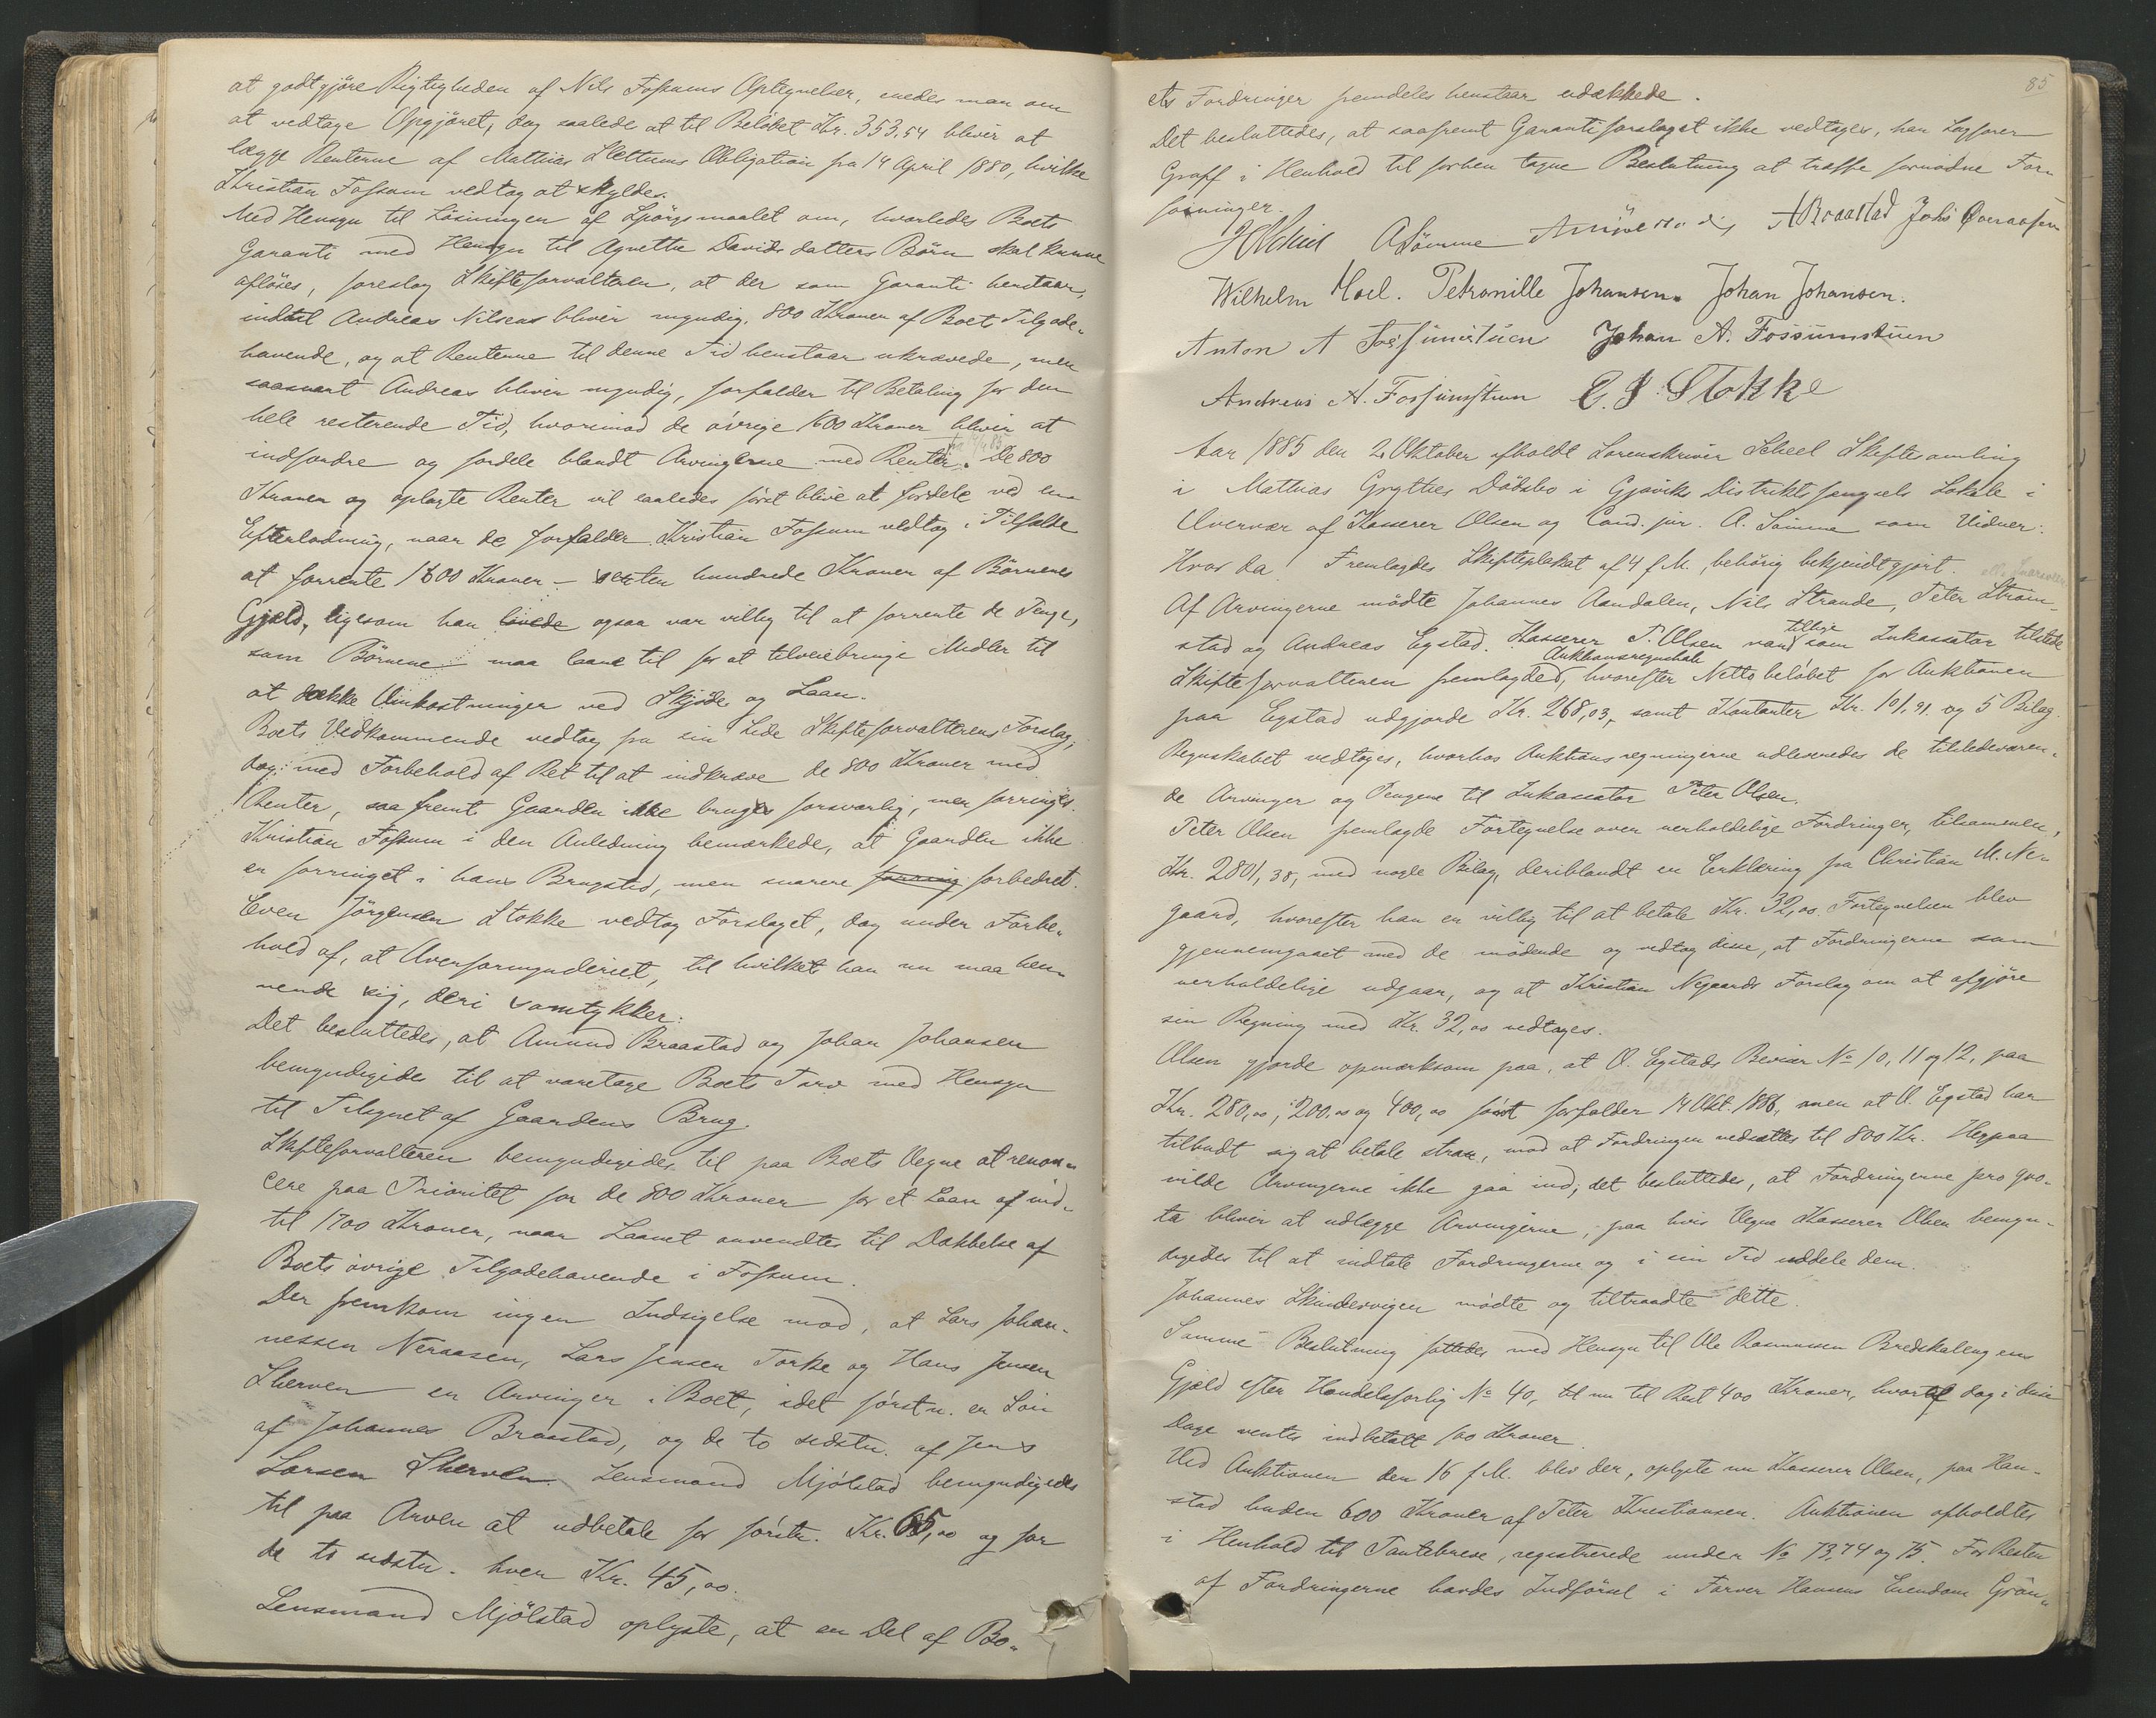 at godtgjöre Rigtigheden af Nils Fossums Optegnelser, enedes man om
at vedtage Opgjöret, dog saalede at til Belöbet Kr. 353,54 bliver at
lægge Renterne af Mathias Slettums Obligation fra 14 April 1880, hvilke
Christian Fossum vedtog at skylde.
Med Hensyn til Lösningen af Spörgsmaalet om, hvorledes Boets
Garanti med Hensyn til Agnethe Davidsdatters Börn skal kunne
aflöses, foreslog Skifteforvalteren, at der som Garanti henstaar,
indtil Andreas Nilsens bliver myndig, 800 Kroner af Boets Tilgode-
havende, og at Renterne til denne Tid henstaar ukrævede, men
saasnart Andreas bliver myndig, forfalder til Betaling for den
hele resterende Tid, hvorimod de övrige 1600 Kroner bliver at
indfordre og fordele blandt Arvingerne med Renter fra 14/4 85. De 800
Kroner og oplagte Renter vil saaledes först blive at fordele ved en
Efterlodning, naar de forfalder. Kristian Fossum vedtog i Tilfælde
at forrente 1600 Kroner – sexten hundrede Kroner af Börnenes
Gjæld, ligesom han lovede ogsaa var villig til at forrente de Penge,
som Börnene maa laane til for at tilveiebringe Midler til
at dække Omkostninger ved Skjöde og Laan.
Boets Vedkommende vedtog fra sin Side Skifteforvalterens Forslag,
dog med Forbehold af Ret til at indkræve de 800 Kroner med
Renter, saa fremt Gaarden ikke bruges forsvarlig, men forringes.
Kristian Fossum i den Anledning bemærkede, at Gaarden ikke
er forringet i hans Brugstid, men snarere forring forbedret.
Even Jörgensen Stokke vedtog Forslaget, dog under Forbe-
hold af, at Overformynderiet, til hvilket han nu maa hen-
vende sig, deri samtykker.
Det besluttedes, at Amund Braastad og Johan Johansen
bemyndigedes til at varetage Boets Tarv med Hensyn
til Tilsynet af Gaardens Brug.
Skifteforvalteren bemyndigedes til paa Boets Vegne at renon-
cere paa Prioritet for de 800 Kroner for et Laan af ind-
til 1700 Kroner, naar Laanet anvendtes til Dækkelse af
Boets övrige Tilgodehavende i Fossum.
Der fremkom ingen Indsigelse mod, at Lars Johan-
nessen Neraasen, Lars Jensen Torke og Hans Jensen
Skerven er Arvinger i Boet, idet förstn. er Sön
af Johannes Braastad, og de to sidstn. af Jens
Larsen Skerven. Lensmand Mjölstad bemyndigedes
til paa Arven at udbetale for förstn. Kr. 65,00 og for
de to sidstn. hver Kr. 45,00.
Lensmand Mjölstad oplyste, at en Del af Bo-
85
ets Fordringer fremdeles henstaar udækkede.
Det besluttedes, at saafremt Garantiforslaget ikke vedtages, har Sagförer
Graff i Henhold til forhen tagne Beslutning at træffe fornödne For-
föininger.
HScheel ASömme ABraastad Johs Overaasen
Wilhelm Hoel. Petronille Johansen. Johan Johansen.
Anton A Fossumstuen Johan A. Fossumstuen
Andreas A. Fossumstuen E. J. Stokke
Aar 1885 den 2. Oktober afholdt Sorenskriver Scheel Skiftesamling
i Mathias Grythes Dödsbo i Gjöviks Distriktsfængsels Lokale i
Overvær af Kasserer Olsen og Cand. jur. A. Sömme som Vidner.
Hvor da Fremlagdes Skifteplakat af 4 f. M., behörig bekjendtgjort.
Af Arvingerne mödte Johannes Aandalen, Nils Strande, Peter Ström-
stad og Andreas Egstad. Kasserer P. Olsen var tillige som Inkassator tilstede
Skifteforvalteren fremlagdes Auktionsregnskab, hvorefter Nettobelöbet for Auktionen
paa Egstad udgjorde Kr. 268,03, samt Kontanter Kr. 101,91 og 5 Bilag.
Regnskabet vedtoges, hvorhos Auktionsregningerne udleveredes de tilstedeværen-
de Arvinger og Pengene til Inkassator Peter Olsen.
Peter Olsen fremlagde Fortegnelse over uerholdelige Fordringer, tilsammen,
Kr. 2801,38, med nogle Bilag, deriblandt en Erklæring fra Christian M. Ne-
gaard, hvorefter han er villig til at betale Kr. 32,00. Fortegnelsen blev
gjennemgaaet med de mödende og vedtog disse, at Fordringerne som
uerholdelige udgaar, og at Kristian Negaards Forslag om at afgjöre
sin Regning med Kr. 32,00 vedtages.
Olsen gjorde opmærksom paa, at O. Egstads Beviser No 10, 11 og 12, paa
Kr. 280,00, 200.00 og 400,00 först forfalder 14 Okt. 1886, men at O. Egstad har
tilbudt sig at betale strax, mod at Fordringen nedsættes til 800 Kr. Herpaa
vilde Arvingerne ikke gaa ind; det besluttedes, at Fordringerne pro quo-
ta bliver at udlægge Arvingerne, paa hvis Vegne Kasserer Olsen bemyn-
digedes til at indtale Fordringerne og i sin Tid uddele dem.
Johannes Skindervigen mödte og tiltraadte dette.
Samme Beslutning fattedes med Hensyn til Ole Rasmussen Bredskallengens
Gjæld efter Handelsforlig No 40, til nu til Rest 400 Kroner, hvoraf dog i disse
Dage ventes indbetalt 100 Kroner.
Ved Auktionen den 16 f. M. blev der, oplyste nu Kasserer Olsen, paa Han-
stad buden 600 Kroner af Peter Kristiansen. Auktionen afholdtes
i Henhold til Pantebreve, registrerede under No 73, 74 og 75. For Resten
af Fordringerne havdes Indförsel i Farver Hansens Eiendom Grön-